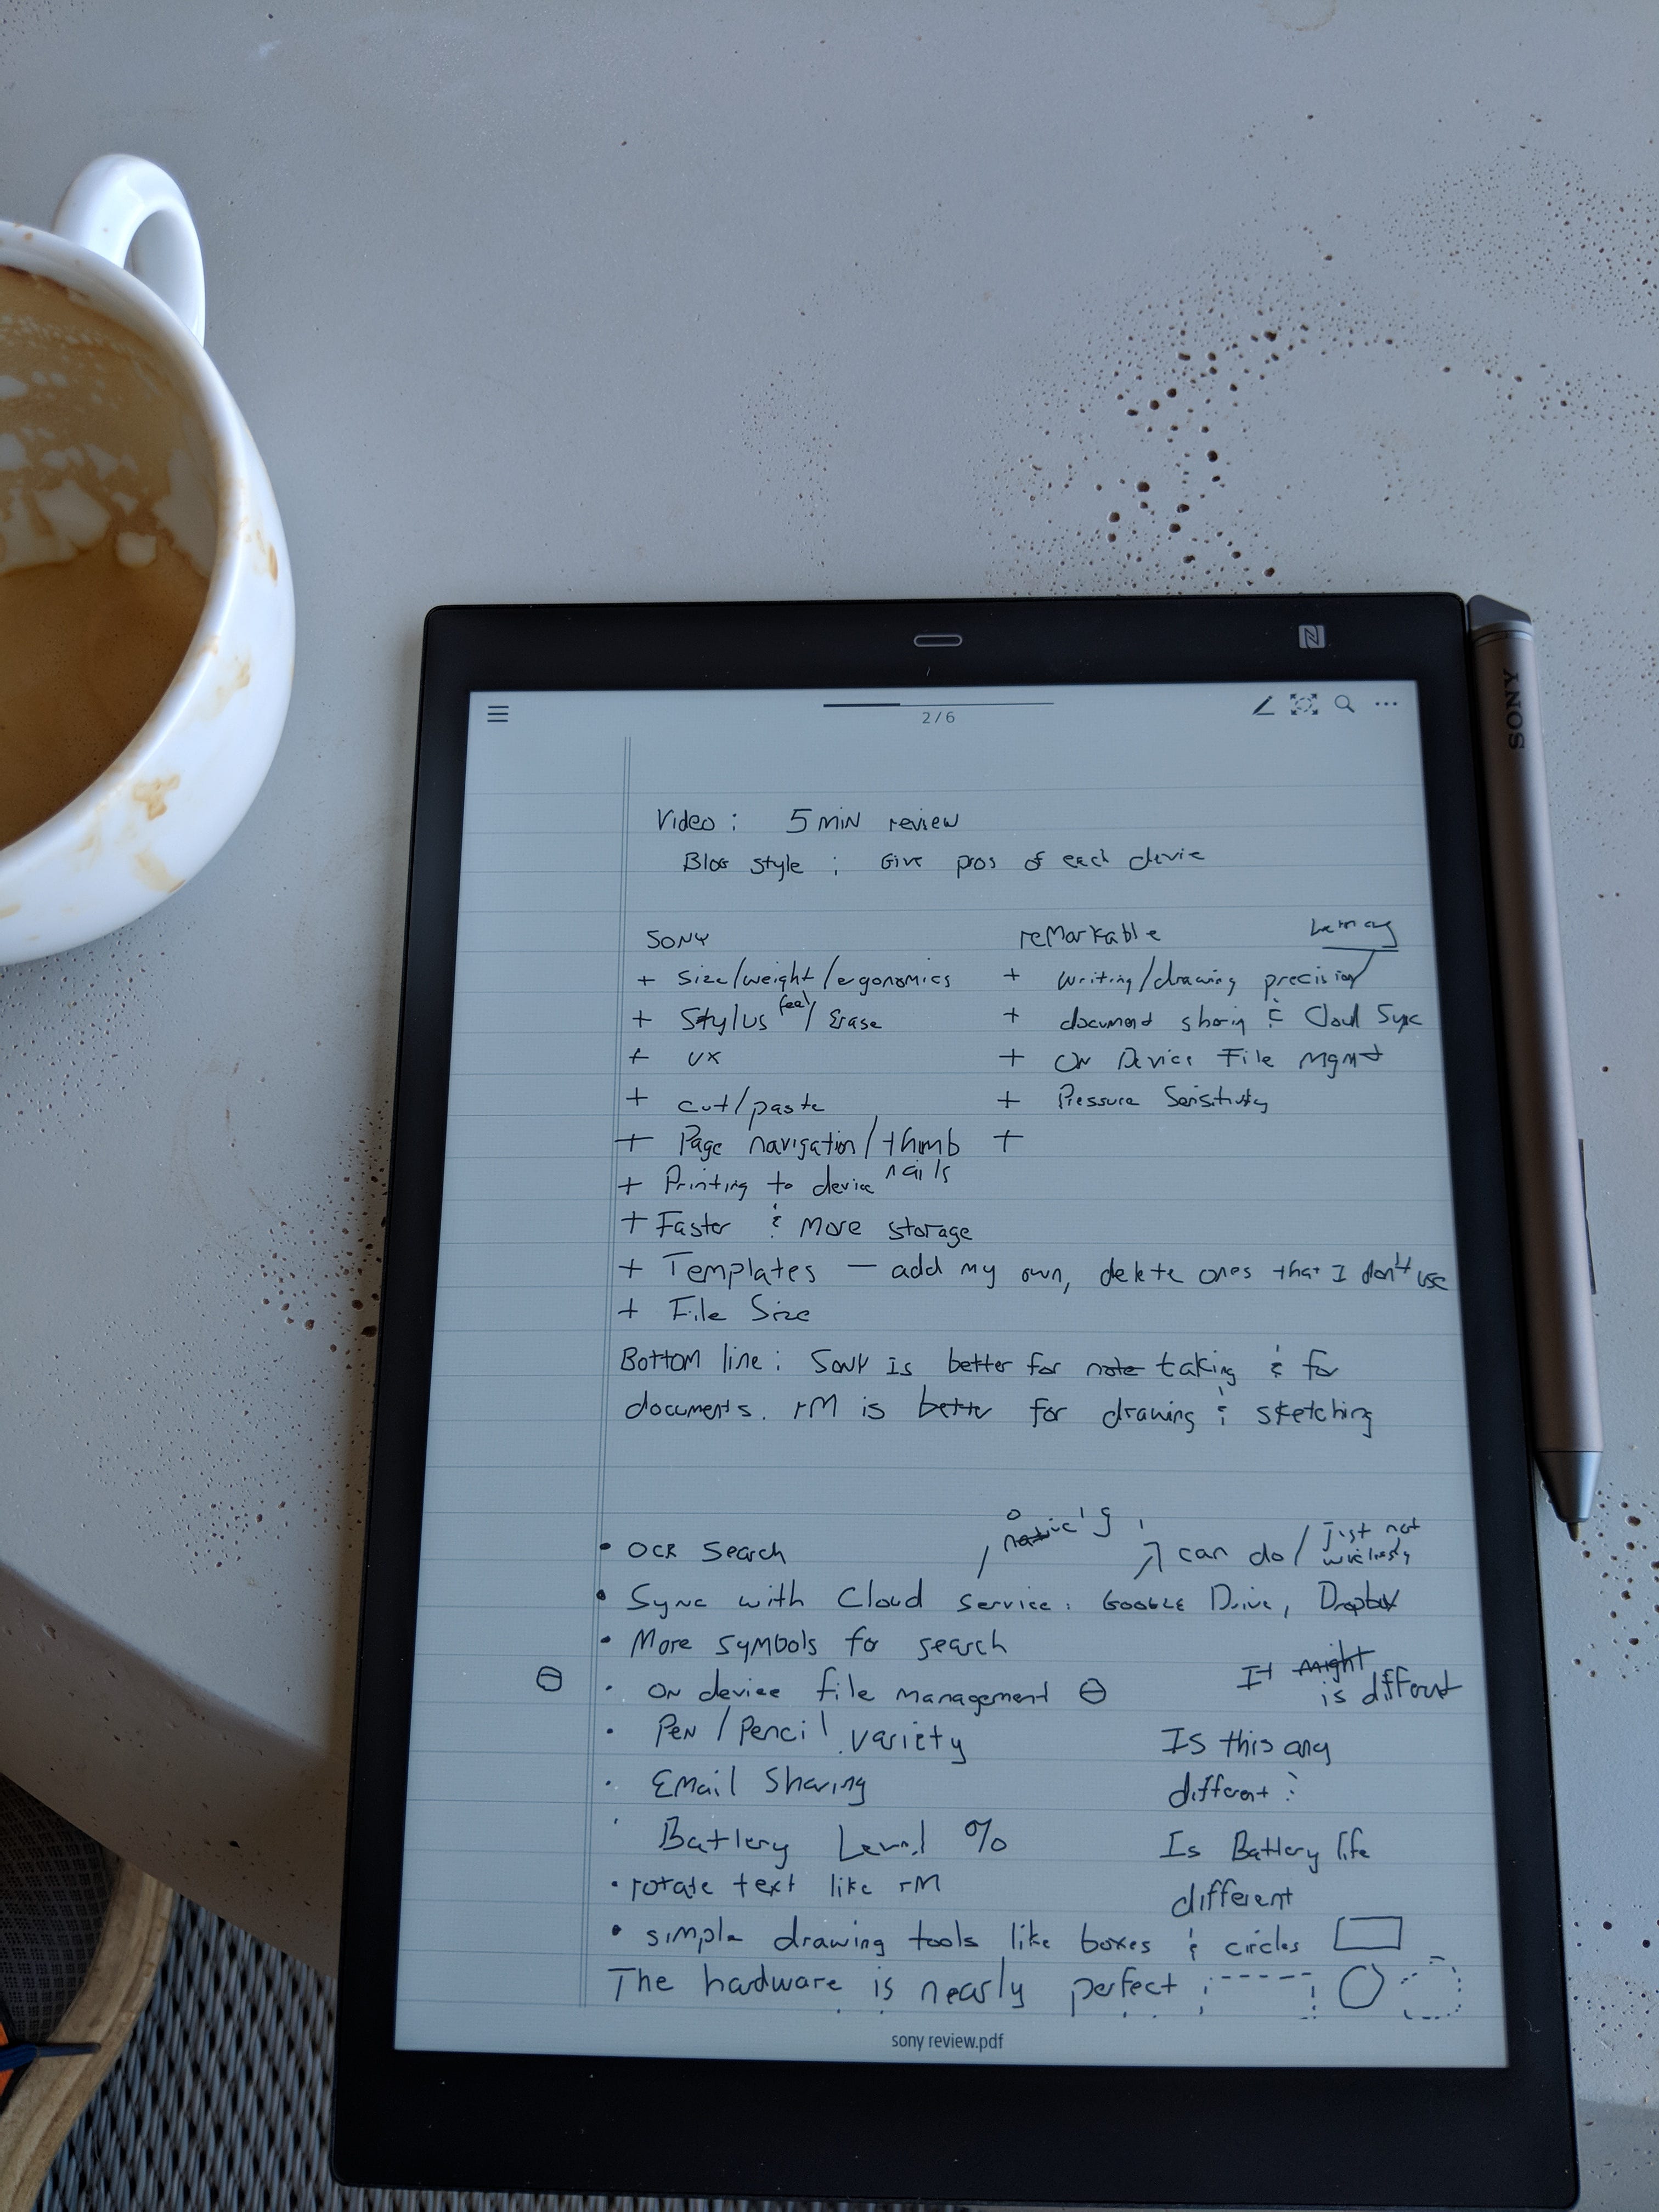 SONY
2/6
Video: 5 min review
Blog style: Give pros of each devie
SONY
reMarkable
+ Size/weight/ergonomics
+ writing/drawing precision
+ Stylus feel/Erase
+ document sharing & Cloud Sync
+ UX
+ On Device File Mgmt
+ cut/paste
+ Pressure Sensitivity
+ Page navigation/thumb nails
+
+ Printing to device
+ Faster & More storage
+ Templates — add my own, delete ones that I don't use
+ File Size
Bottom line: Sony is better for note taking & for
documents. rM is better for drawing & sketching
• OCR Search
can do / just not wirelessly
• Sync with Cloud service: Google Drive, Dropbox
• More symbols for search
• On device file management
It might is different
• Pen/Pencil variety
Is this any
• Email Sharing
different?
• Battery Level %
Is Battery life
• rotate text like rM
different
• simple drawing tools like boxes & circles
The hardware is nearly perfect
sony review.pdf